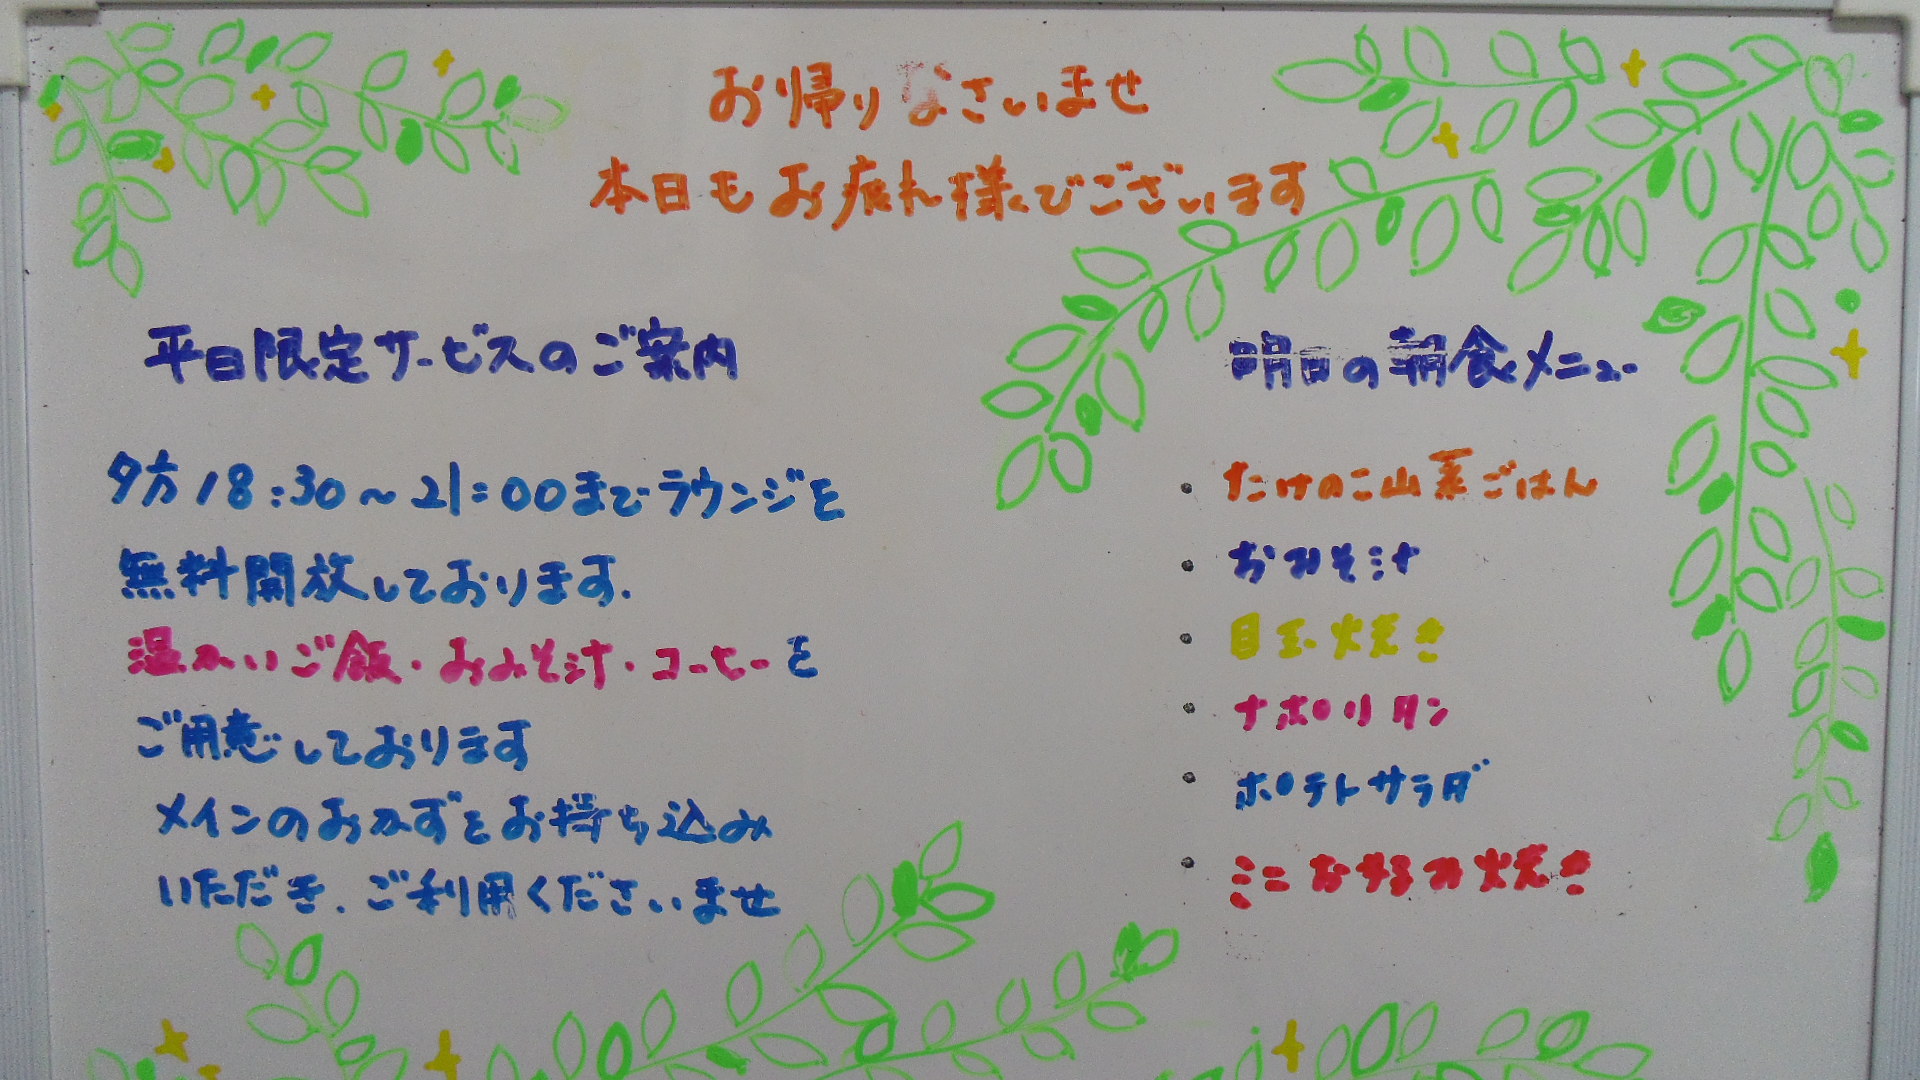 お帰りなさいませ
本日もお疲れ様でございます
平日限定サービスのご案内
夕方18:30～21:00までラウンジを
無料開放しております.
温かいご飯・おみそ汁・コーヒーを
ご用意しております
メインのおかずをお持ち込み
いただき、ご利用くださいませ
明日の朝食メニュー
・たけのこ山菜ごはん
・おみそ汁
・目玉焼き
・ナポリタン
・ポテトサラダ
・ミニお好み焼き